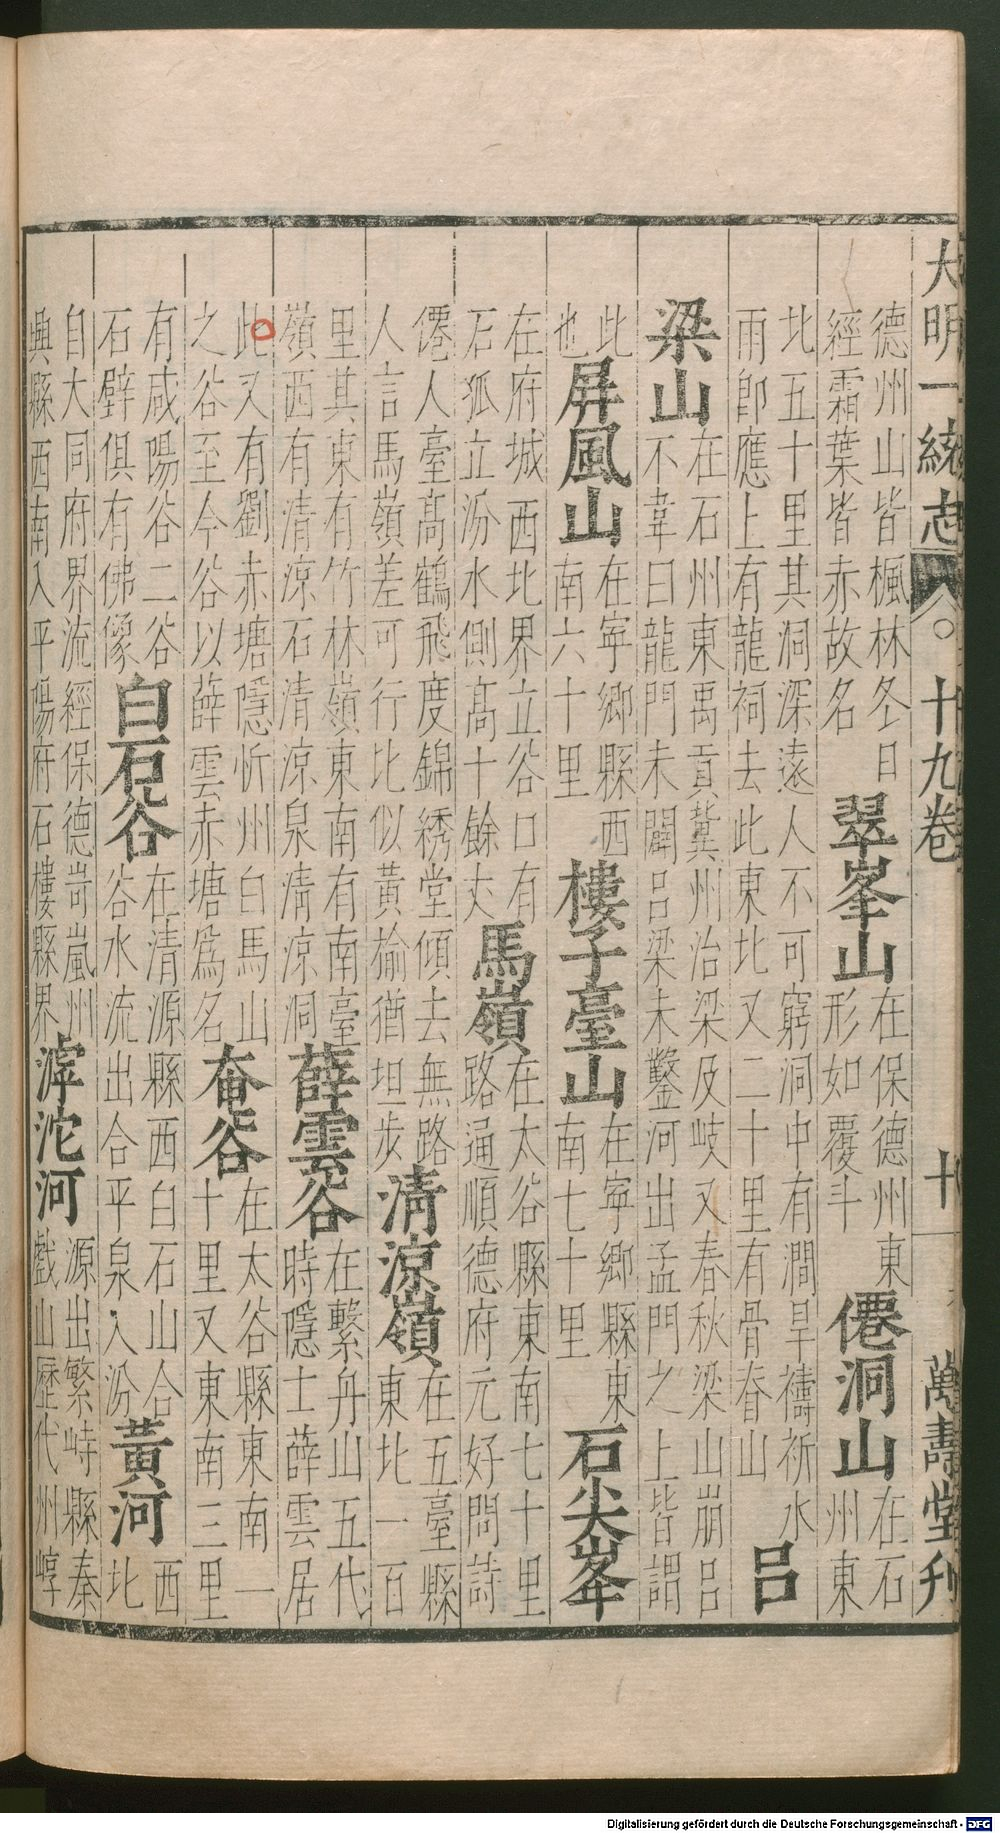 大明一統志 十九卷 十 萬壽堂刋
德州山皆楓林冬日
經霜葉皆赤故名
翠峯山
在保德州東
形如覆斗
僊洞山
在石
州東
北五十里其洞深遠人不可窮洞中有澗旱禱祈水
雨卽應上有龍祠去此東北又二十里有骨脊山
呂
梁山
在石州東禹貢冀州治梁及岐又春秋梁山崩呂
不韋曰龍門未闢呂梁未鑿河出孟門之上皆謂
此
也
屏風山
在寧鄉縣西
南六十里
樓子臺山
在寧鄉縣東
南七十里
石尖峯
在府城西北界立谷口有
石狐立汾水側高十餘丈
馬嶺
在太谷縣東南七十里
路通順德府元好問詩
僊人臺高鶴飛度錦綉堂傾去無路
人言馬嶺差可行比似黃榆猶坦步
清涼嶺
在五臺縣
東北一百
里其東有竹林嶺東南有南臺
嶺西有清涼石清涼泉清涼洞
薛雲谷
在繫舟山五代
時隱士薛雲居
此又有劉赤塘隱忻州白馬山
之谷至今谷以薛雲赤塘爲名
奄谷
在太谷縣東南一
十里又東南三里
有咸陽谷二谷
石壁俱有佛像
白石谷
在清源縣西白石山合
谷水流出合平泉入汾
黃河
西
北
自大同府界流經保德岢嵐州
興縣西南入平陽府石樓縣界
滹沱河
源出繁峙縣秦
戲山歷代州崞
Digitalisierung gefördert durch die Deutsche Forschungsgemeinschaft - DFG